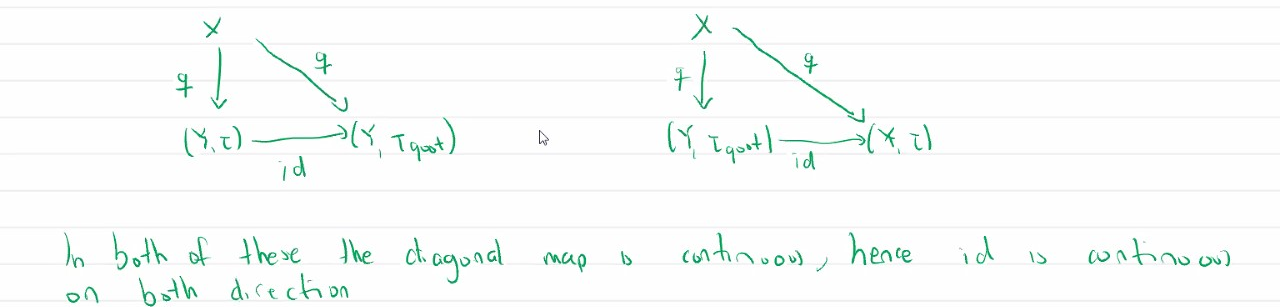 X X
q q q q
(Y, τ) (Y, τquot) (Y, τquot) (X, τ)
id id
In both of these the diagonal map is continuous, hence id is continuous
on both direction